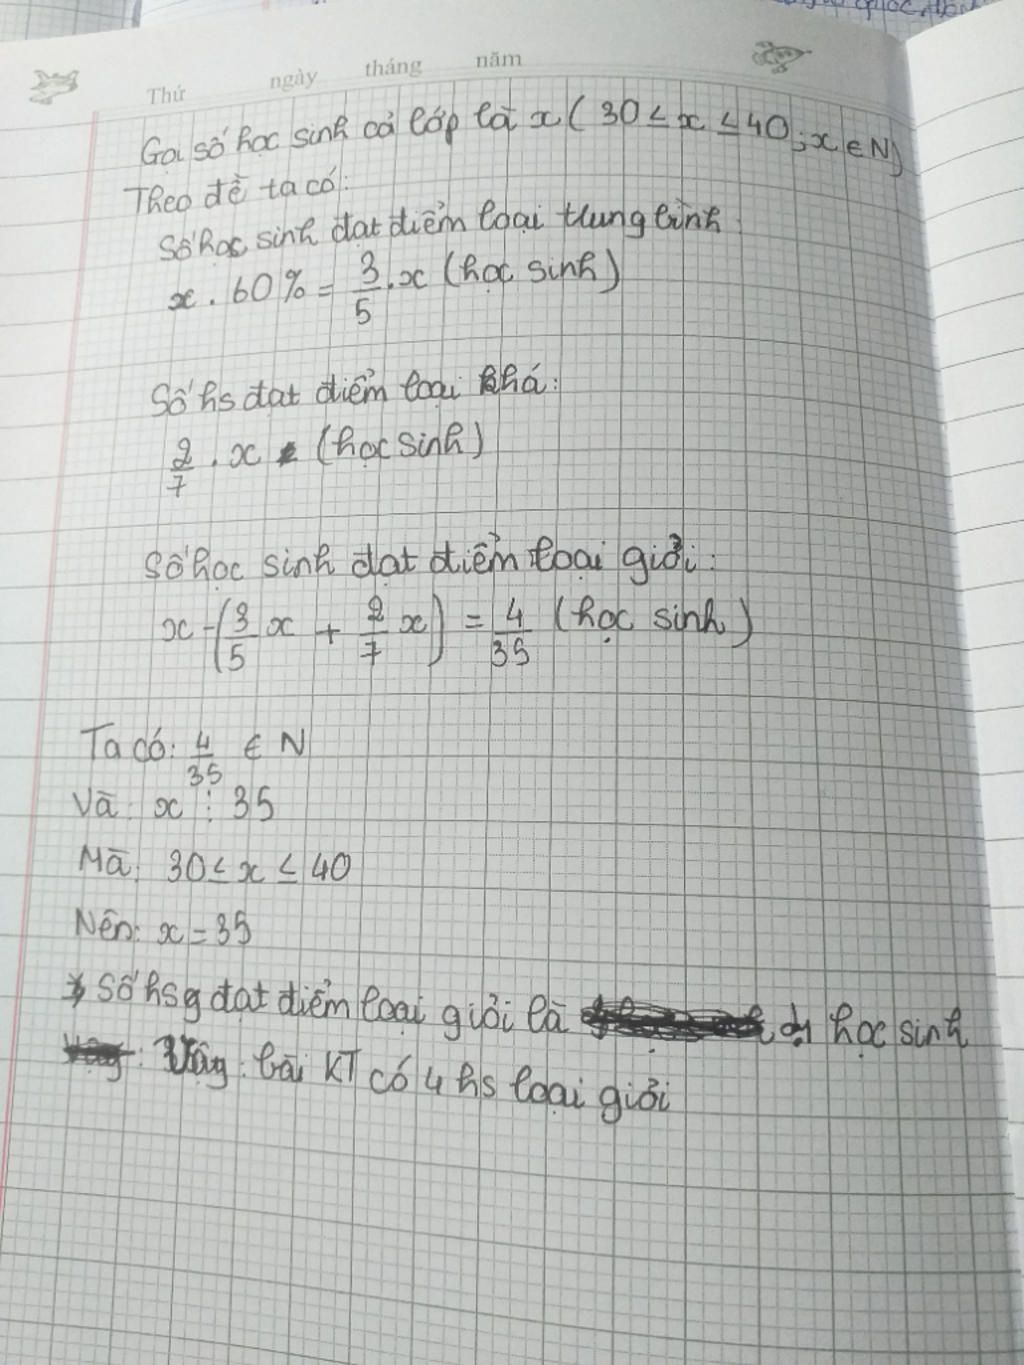 Thứ ngày tháng năm
Gọi số học sinh cả lớp là x ( 30 ≤ x ≤ 40 ; x ∈ N)
Theo đề ta có:
Số học sinh đạt điểm loại trung bình
x . 60% = 3/5 . x (học sinh)
Số hs đạt điểm loại khá:
2/7 . x (học sinh)
Số học sinh đạt điểm loại giỏi:
x - (3/5 x + 2/7 x) = 4/35 (học sinh)
Ta có: 4/35 ∈ N
Và: x ⋮ 35
Mà: 30 ≤ x ≤ 40
Nên: x = 35
Số hsg đạt điểm loại giỏi là học sinh
Vậy: bài KT có 4 hs loại giỏi